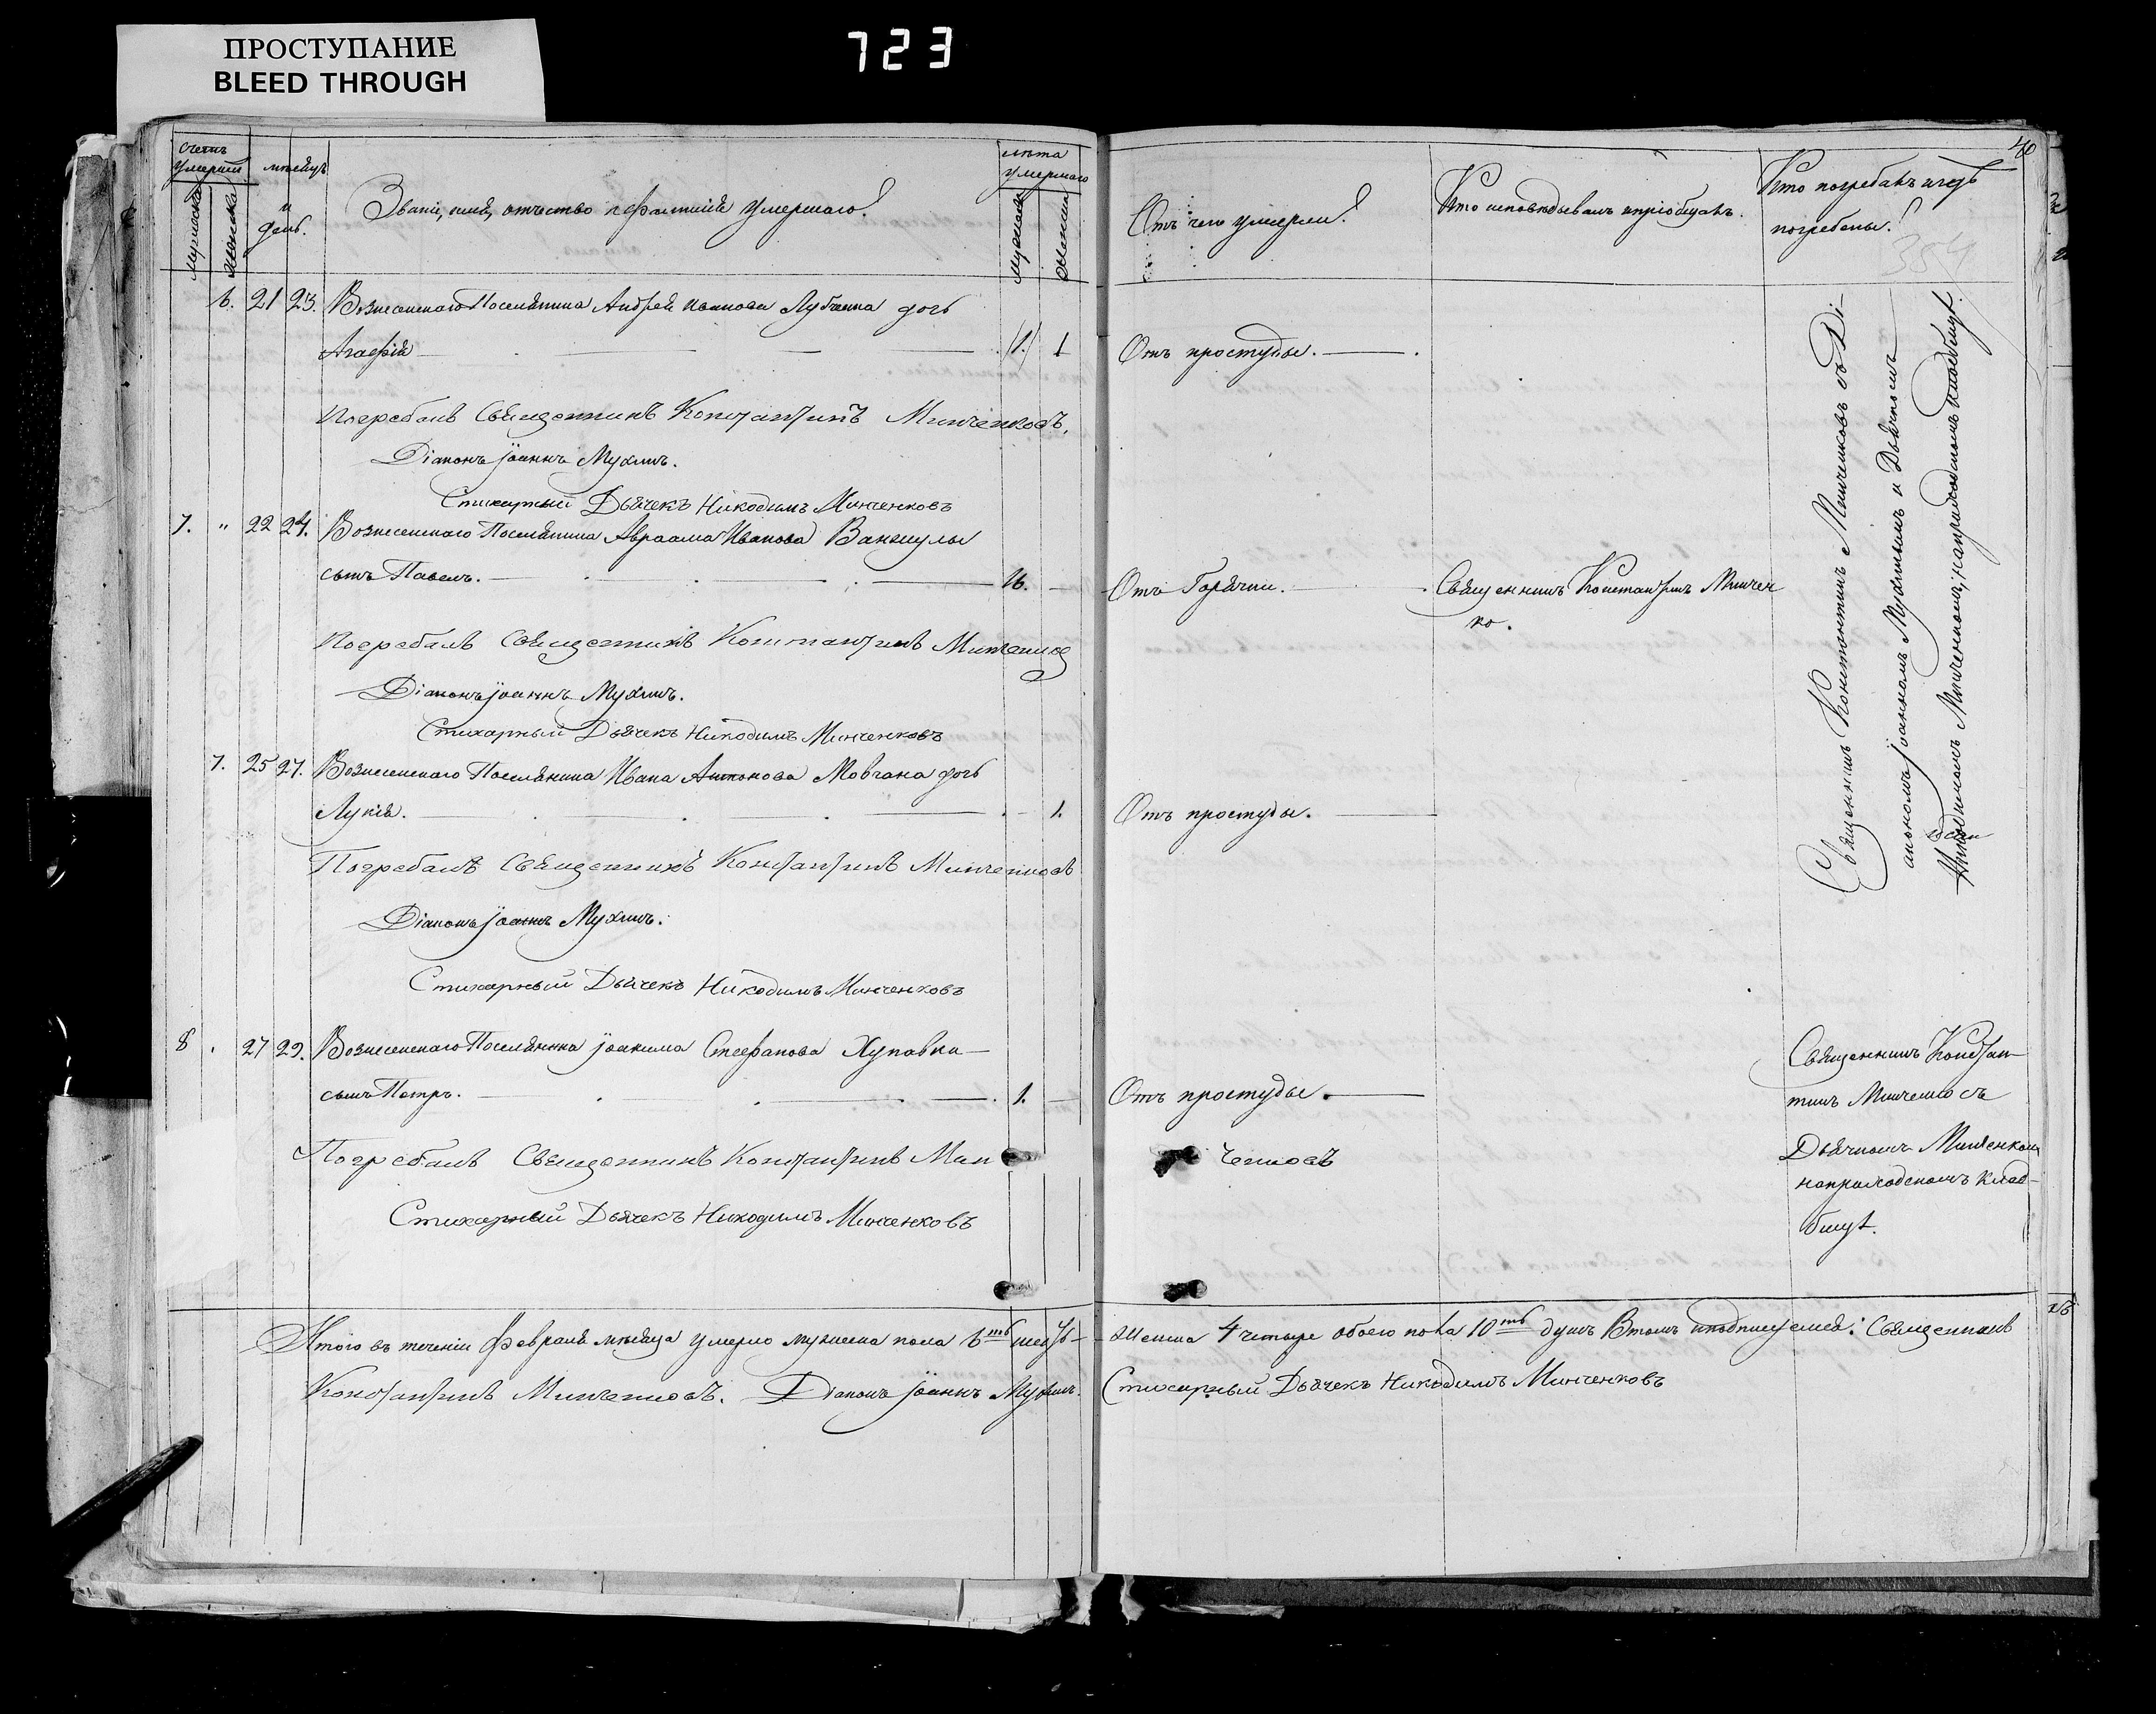 ПРОСТУПАНИЕ
BLEED THROUGH
723
счетъ
умершихъ
мужеска
женска
мѣсяцъ
и
день.
Званіе, имя, отчество и фамилія умершаго.
лѣта
умершаго
мужеска
женска
6. 21 23. Вознесенскаго Поселянина Андрея Иванова Лубенца дочь
Агафія 1
Погребалъ Священникъ Константинъ Минченковъ.
Діаконъ Іоаннъ Мухинъ.
Стихарный Дьячекъ Никодимъ Минченковъ
7. " 22 24. Вознесенскаго Поселянина Авраама Иванова
сынъ Павелъ. 16.
Погребалъ Священникъ Константинъ Минченков
Діаконъ Іоаннъ Мухинъ.
Стихарный Дьячекъ Никодимъ Минченковъ
7. 25 27. Вознесенскаго Поселянина Ивана Антонова Мовчана дочь
Лукія. 1.
Погребалъ Священникъ Константинъ Минченковъ
Діаконъ Іоаннъ Мухинъ.
Стихарный Дьячекъ Никодимъ Минченковъ
8 27 29. Вознесенскаго Поселянина Іоакима Стефанова Хупавка
сынъ Петръ. 1.
Погребалъ Священникъ Константинъ Мин
Стихарный Дьячекъ Никодимъ Минченковъ
Итого въ теченіи Февраля мѣсяца умерло мужеска пола 6ть шесть
Константинъ Минченковъ. Діаконъ Іоаннъ Мухинъ.
40
Отъ чего умерли.
Кто исповѣдывалъ и пріобщалъ.
Кто погребалъ и гдѣ
погребены.
354
Отъ простуды.
Отъ Горячки.
Священникъ Константинъ Минчен
ко.
Отъ простуды.
Священникъ Константинъ Минченковъ съ Ді-
акономъ Іоанномъ Мухинымъ и Дьячкомъ
Никодимомъ Минченкомъ, на приходскомъ кладбищѣ.
Отъ простуды.
ченковъ
Священникъ Констан-
тинъ Минченко съ
Дьячкомъ Минченкомъ
на приходскомъ клад-
бищѣ.
женска 4 четыре обоего пола 10ть душъ В томъ и подписуемся: Священникъ
Стихарный Дьячекъ Никодимъ Минченковъ